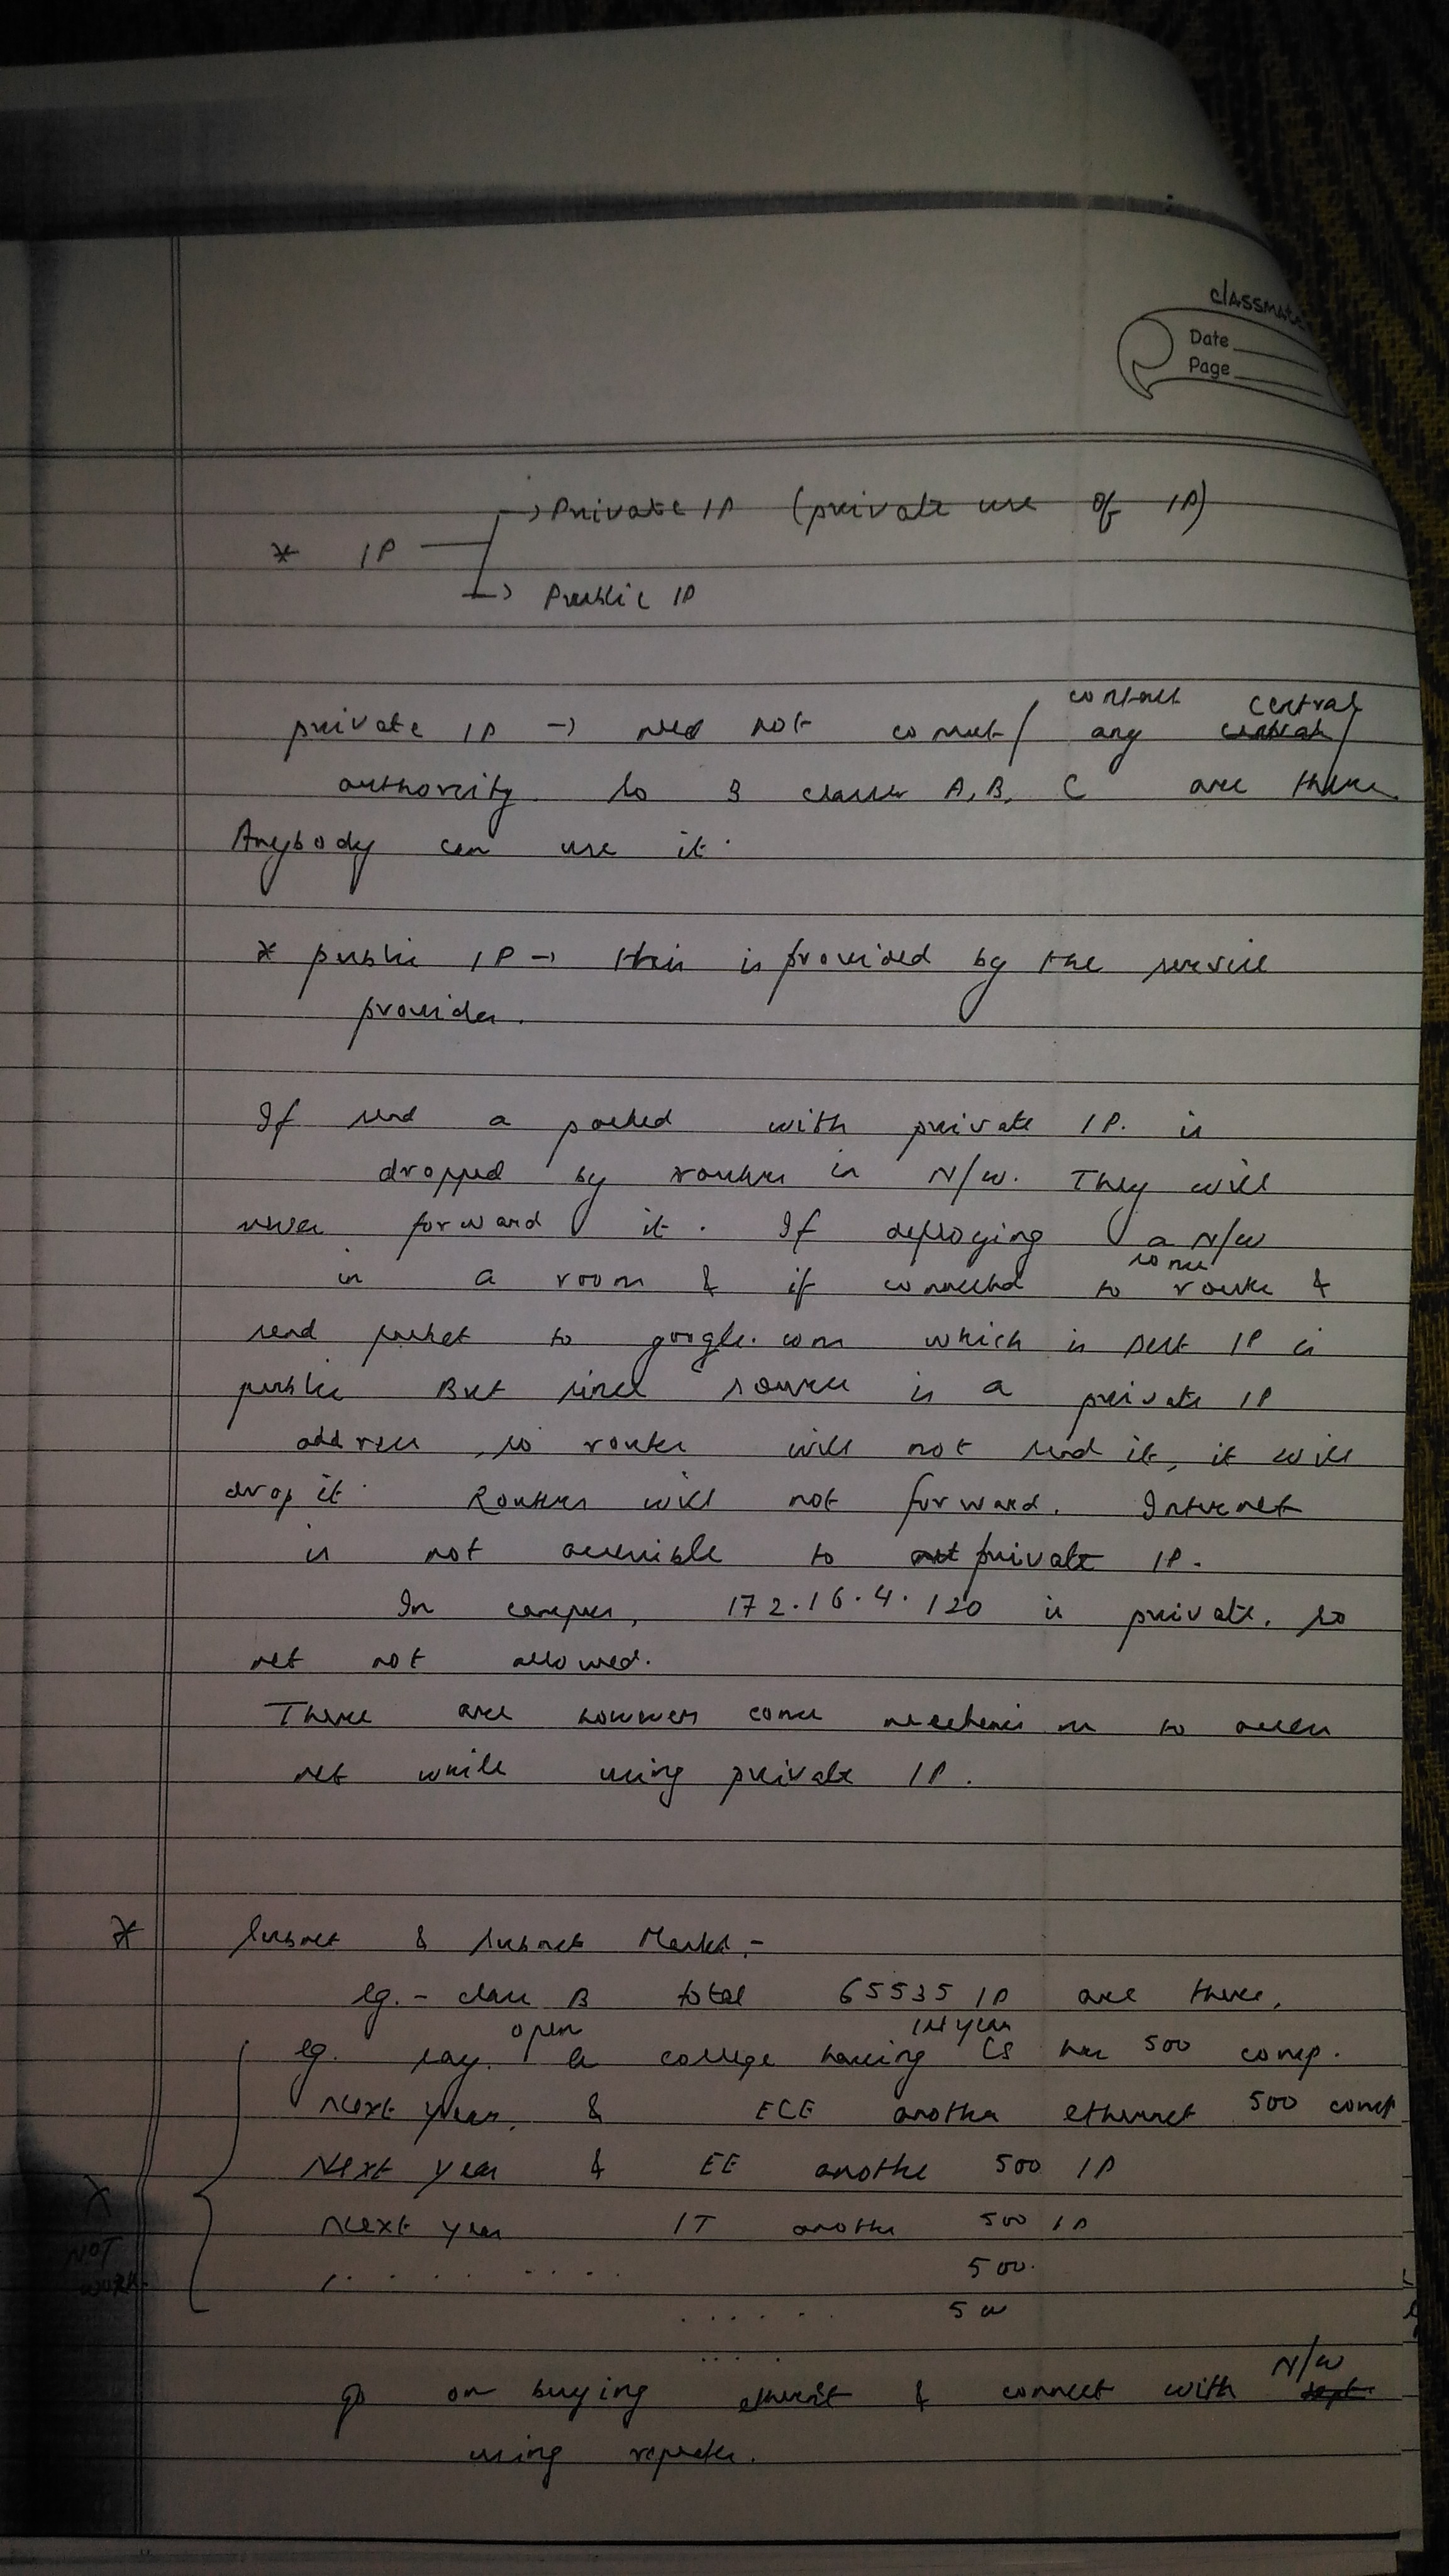 classmate
Date
Page
→ Private IP (private use of IP)
* IP
→ Public IP
contact central
private IP → need not connect/ any central/
authority so 3 classes A, B, C are there
Anybody can use it.
* public IP → this is provided by the service
provider.
If send a packed with private IP. is
dropped by routers in N/W. They will
never forward it. If deploying a N/W
some
in a room & if connected to route &
send packet to google.com which is dest IP is
public But since source is a private IP
address, so router will not send it, it will
drop it. Routers will not forward. Internet
is not accessible to net private IP.
In campus, 172.16.4.120 is private, so
net not allowed.
There are however some mechanism to access
net while using private IP.
* Subnet & Subnet Masked.-
eg.- class B total 65535 IP are there.
open 1st year
eg. say. a college having CS has 500 comp.
Next year, & ECE another ethernet 500 comp
Next year & EE anothe 500 IP
Next year IT another 500 IP
. . . . . . . 500.
. . . . . . 500
X
NOT
WORK.
. . . .
N/W
go on buying ethernet & connect with dept
using repeater.